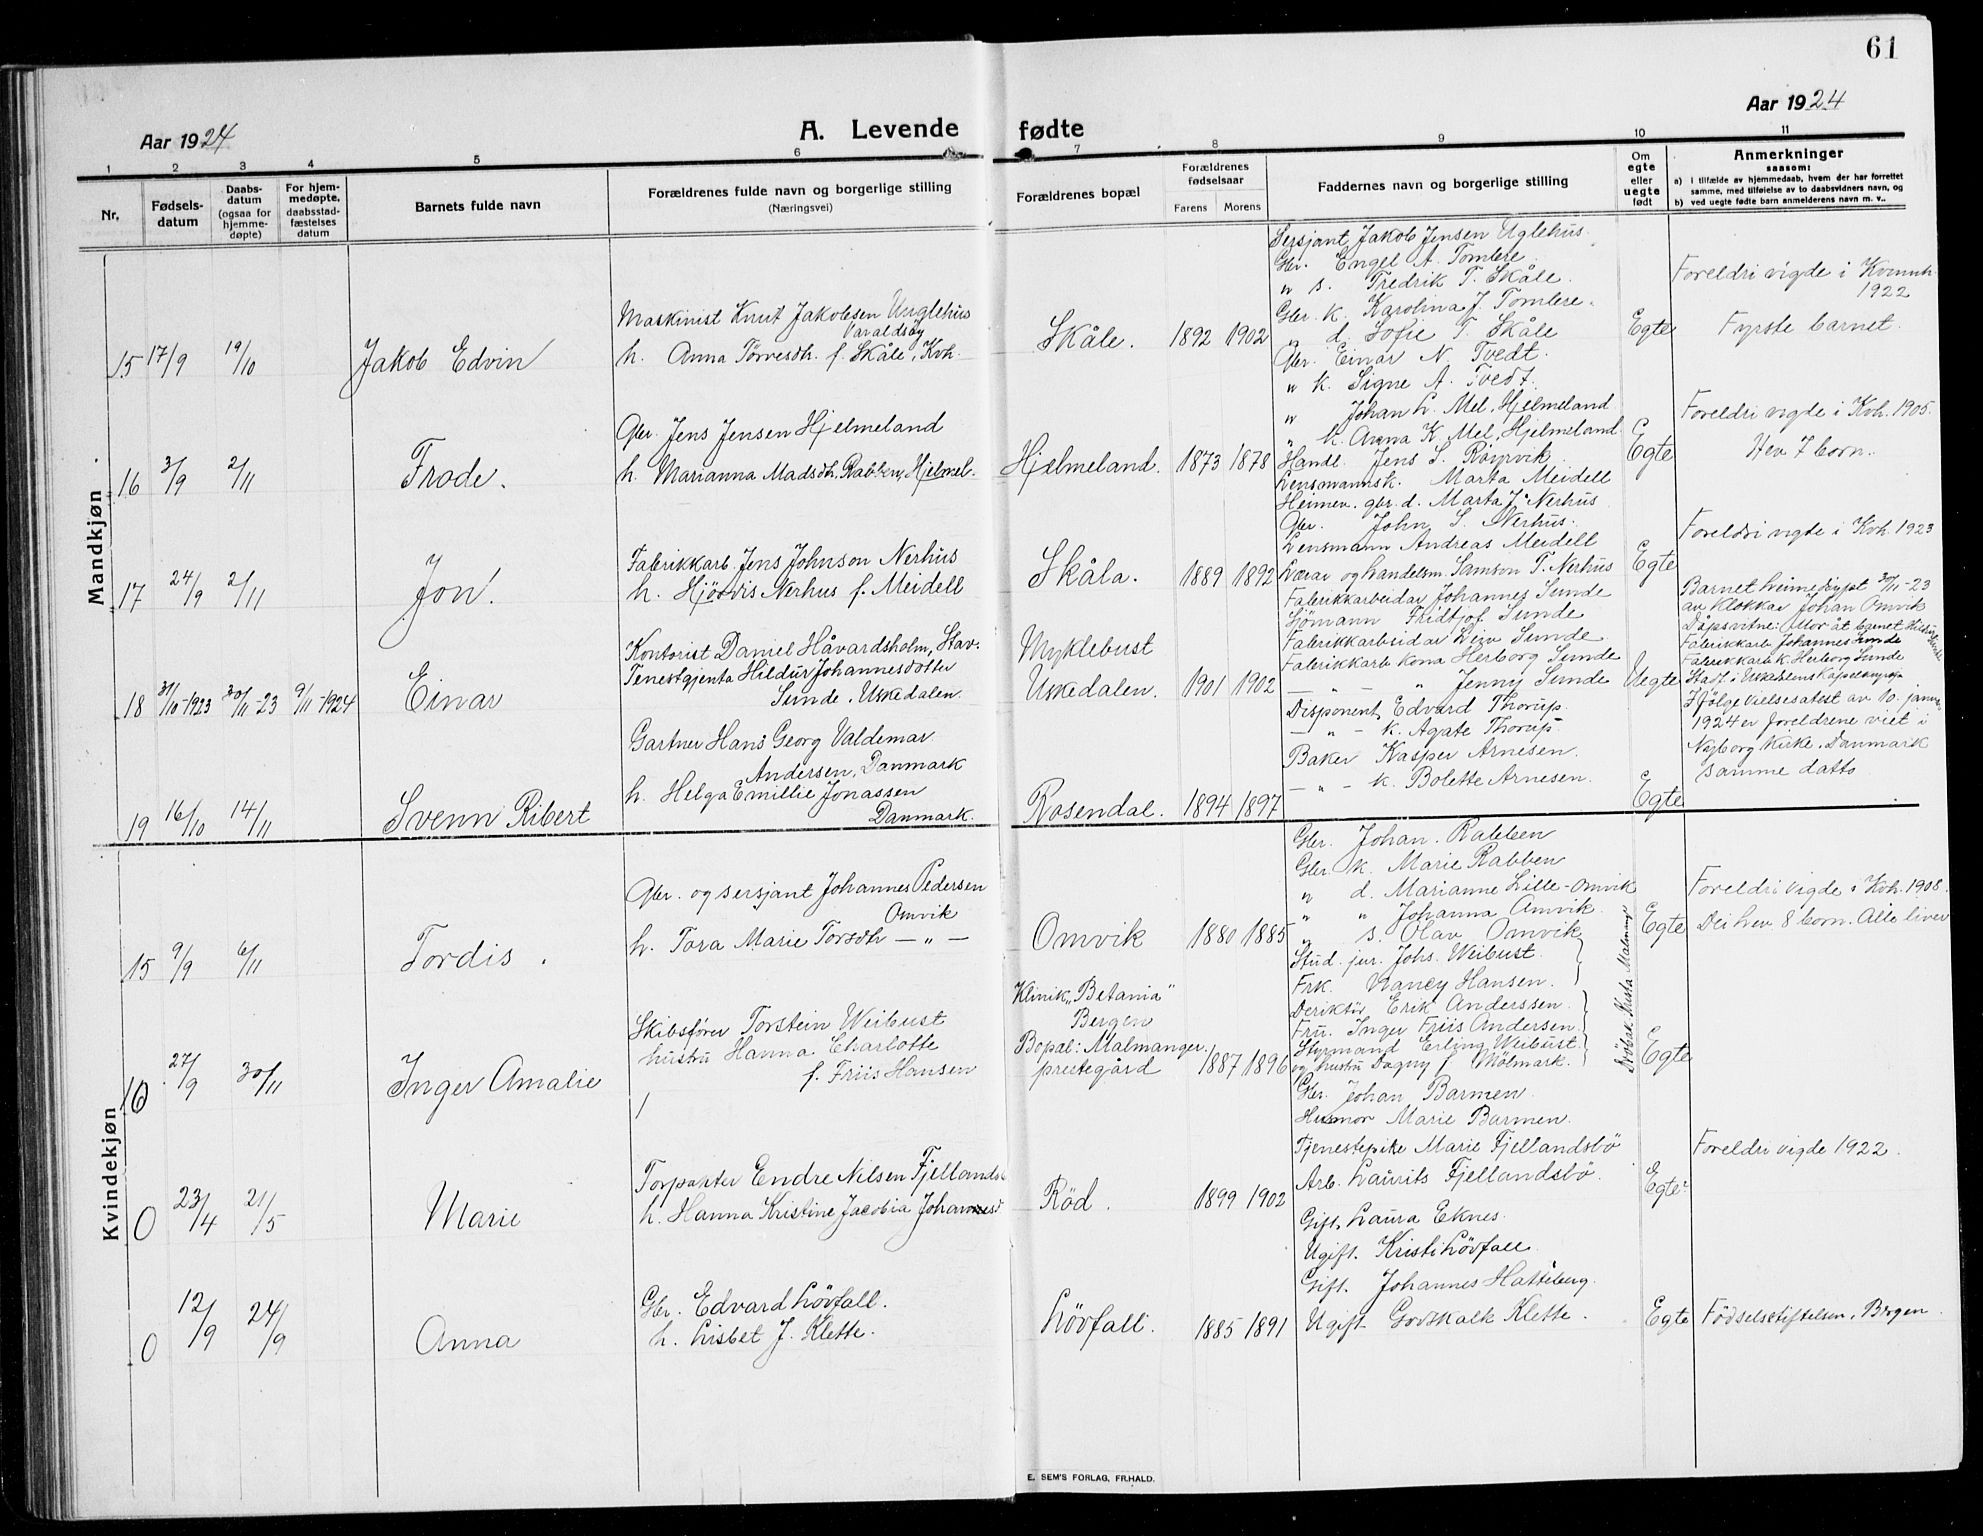 61
Aar 1924
A. Levende fødte
Aar 1924
1 2 3 4 5 6 7 8 9 10 11
Nr.
Fødsels-
datum
Daabs-
datum
(ogsaa for
hjemme-
døpte)
For hjem-
medøpte,
daabsstad-
fæstelses
datum
Barnets fulde navn
Forældrenes fulde navn og borgerlige stilling
(Næringsvei)
Forældrenes bopæl
Forældrenes
fødselsaar
Farens Morens
Faddernes navn og borgerlige stilling
Om
egte
eller
uegte
født
Anmerkninger
saasom:
a) i tilfælde av hjemmedaab, hvem der har forrettet
samme, med tilføielse av to daabsvidners navn, og
b) ved uegte fødte barn anmelderens navn m. v..
Mandkjøn
15 17/9 19/10 Jakob Edvin
Maskinist Knut Jakobsen Unglehus
Varaldsøy
h. Anna Tørresdh. f. Skåle, Kvh.
Skåle. 1892 1902
Sersjant Jakob Jensen Uglehus.
Gbr. Engel A. Tomlere.
" s. Fredrik T. Skåle.
Gbr. k. Karolina J. Tomlere.
" d. Sofie T. Skåle
Gbr. Einar N. Tvedt.
" k. Signe A. Tvedt.
Egte
Foreldri vigde i Kvinnh.
1922
Fyrste barnet.
16 3/9 2/11 Frode.
Gbr. Jens Jensen Hjelmeland
h. Marianna Madsdh. Rabben, Hjelmel.
Hjelmeland. 1873 1878
" Johan L. Mel, Hjelmeland
" k. Anna K. Mel, Hjelmeland
Handl. Jens S. Röyrvik
Lensmannsk. Marta Meidell
Heimev. gbr. d. Marta J. Nerhus
Egte
Foreldri vigde i Kvh. 1905.
Hev 7 born.
17 24/9 2/11 Jon.
Fabrikkarb. Jens Johnson Nerhus
h. Hjördis Nerhus f. Meidell
Skåla. 1889 1892
Gbr. John S. Nerhus.
Lensmann Andreas Meidell
Lærar og handelsm. Samson T. Nerhus
Egte
Foreldri vigde i Kvh. 1923
18 31/10-1923 30/11-23 9/11-1924 Einar
Kontorist Daniel Håvardsholm, Stav.
Tenestgjenta Hildur Johannesdotter
Sunde. Uskedalen.
Myklebust
Uskedalen. 1901 1902
Fabrikkarbeidar Johannes Sunde
Sjömann Fridtjof Sunde
Fabrikkarbeidar Leiv Sunde
Fabrikkarb. kona Herborg Sunde
— " — " Jenny Sunde
Uegte
Barnet heimedöypt 30/11-23
av klokkar Johan Omvik
Dåpsvitne: Mor åt barnet Hildur Sunde
Fabrikkarb. Johannes Sunde
Fabrikkarb. k. Herborg Sunde
Stadf. i Uskedalens kapel
19 16/10 14/11 Svenn Ribert
Gartner Hans Georg Valdemar
Andersen, Danmark
h. Helga Emillie Jonassen
Danmark.
Rosendal. 1894 1897
Disponent Edvard Thorup.
— " — k. Agate Thorup.
Baker Kasper Arnesen.
— " — k. Bolette Arnesen.
Egte
Ifölge vielsesatest av 10. januar
1924 er foreldrene viet i
Nyborg kirke. Danmark
samme datto
Kvindekjøn
15 9/9 6/11 Tordis.
Gbr. og sersjant Johannes Pedersen
Omvik
h. Tora Marie Torsdh — " —
Omvik 1880 1885
Gbr. Johan. Rabben
Gbr. k. Marie Rabben
" d. Marianne Lille-Omvik
" " Johanna Omvik
" s. Olav Omvik
Egte
Foreldri vigde i Kvh. 1908.
Dei hev 8 born. Alle liver
16 27/9 30/11 Inger Amalie
Skibsfører Torstein Weibust
hustru Hanna Charlotte
f. Friis Hansen
Klinik "Betania"
Bergen
Bopæl: Malmanger
prestegård 1887 1896
Stud. jur. Johs. Weibust.
Frk. Nancy Hansen.
Derektør Erik Anderssen.
Fru. Inger Friis Andersen.
Styrmand Erling Weibust.
og hustru Dagny f. Mölmark.
Egte
0 23/4 21/5 Marie
Torparter Endre Nilsen Fjellandsb
h. Hanna Kristine Jacobia Johannesd
Röd. 1899 1902
Gbr. Johan Barmen.
Husmor Marie Barmen.
Tjenestepike Marie Fjellandsbö
Arb. Laurits Fjellandsbö.
Egte
Foreldri vigde 1922.
0 12/9 24/9 Anna
Gbr. Edvard Lövfall.
h. Lisbet J. Klette.
Lövfall. 1885 1891
Gift. Laura Eknes.
Ugift. Kristi Lövfall
Gift. Johannes Hatteberg.
Ugift. Godskalk Klette.
Egte
Födselsstiftelsen, Bergen.
E. SEM'S FORLAG, FR.HALD.